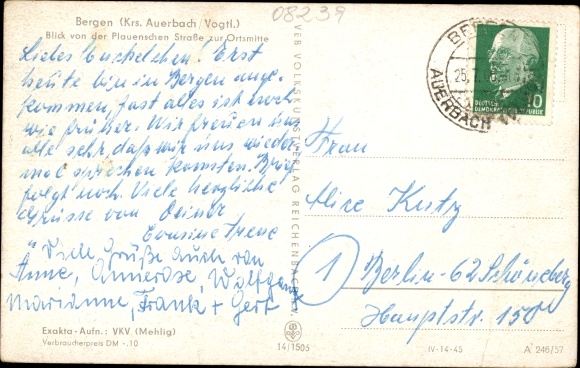 Bergen (Krs. Auerbach/Vogtl.)
Blick von der Plauenschen Straße zur Ortsmitte
08239
Liebes Cuckelchen! Erst
heute bin in Bergen ange-
kommen, fast alles ist noch
wie früher. Wir freuen uns
alle sehr, daß wir uns wieder
mal sprechen konnten. Brief
folgt noch. Viele herzliche
Grüsse von Deiner
Cousine Irene
Viele Grüße auch von
Anne, Annerose, Wolfgang
Marianne, Frank + Gert
Exakta-Aufn.: VKV (Mehlig)
Verbraucherpreis DM -.10
VEB VOLKSKUNSTVERLAG REICHENBACH I. V.
14/1505
AUERBACH
25.
DEUTSCHE
DEMOKRATISCHE REPUBLIK
10
Frau
Alice Kutz
1 Berlin-62 Schöneberg
Hauptstr. 150
IV-14-45
A 246/57